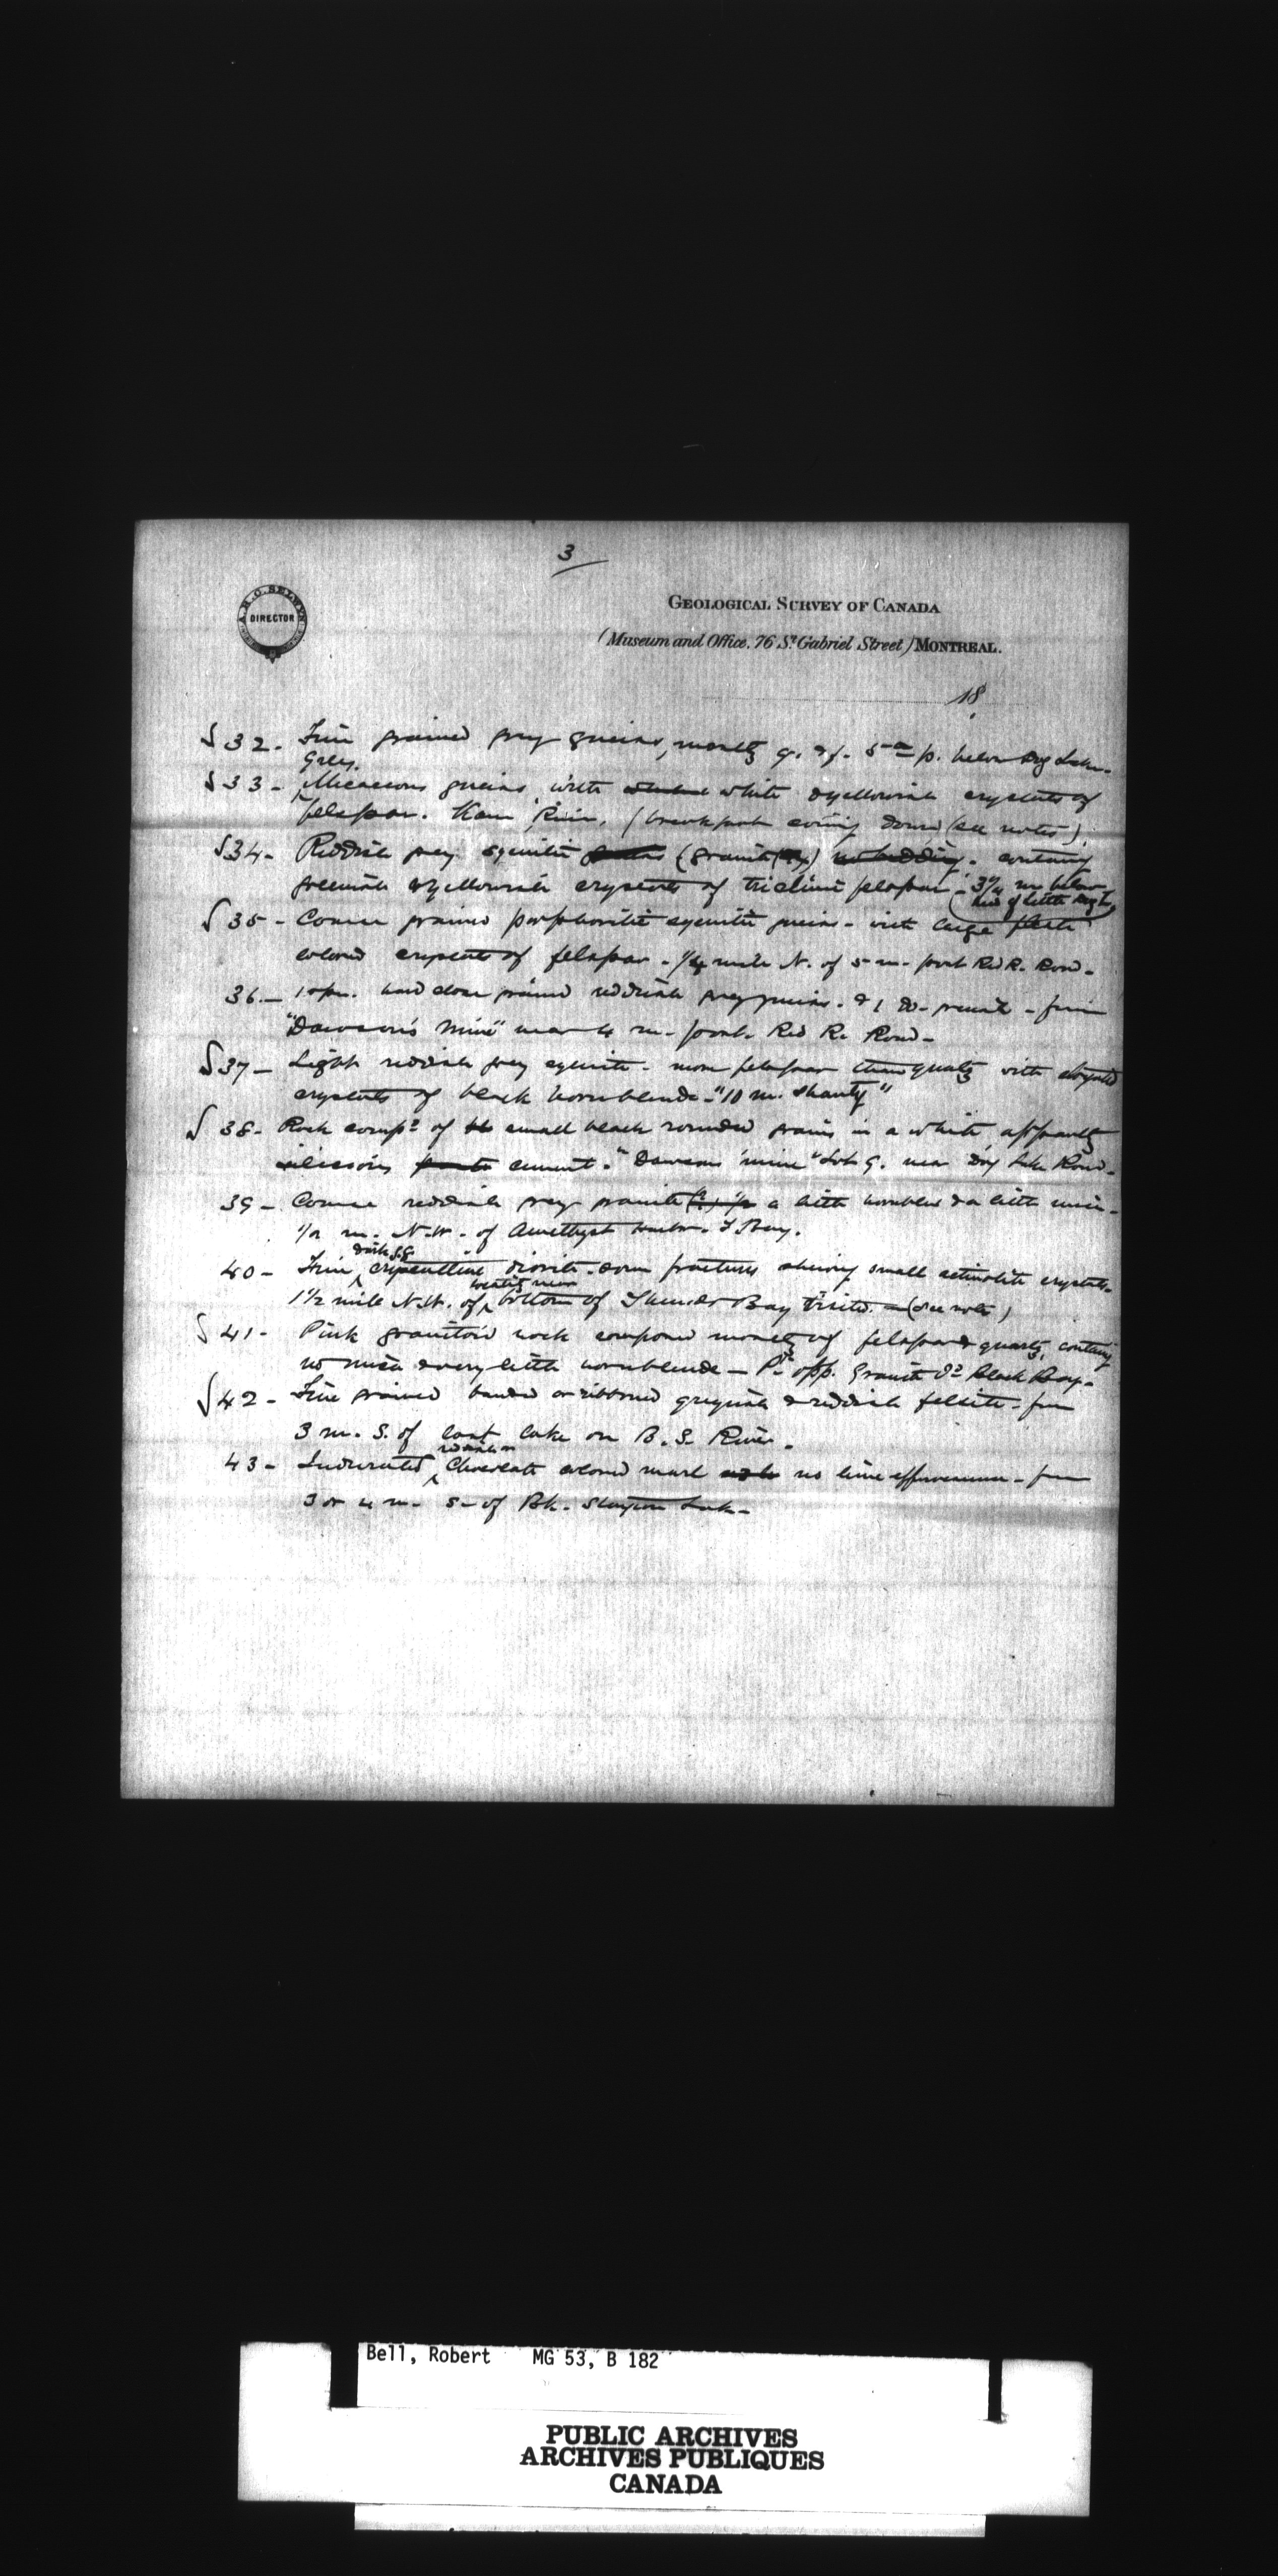 3
A. R. C. SELWYN
DIRECTOR
GEOLOGICAL SURVEY OF CANADA
(Museum and Office, 76 St. Gabriel Street) MONTREAL.
18
32 - Fine grained grey gneiss, mostly q. & f. 5th p. below Dog Lake.
Grey
33 - Micaceous gneiss with white & yellowish crystals of
felspar. Kam. River. (breakfast coming down (see notes)
34 - Reddish grey syenitic (granite no bedding. containing
greenish & yellowish crystals of triclinic felspar - 3 1/4 m. below
end of little Dog L.
35 - Coarse grained porphoritic syenitic gneiss - with large flesh
colored crystals of felspar - 1/4 mile N. of 5 m. post Red R. Road -
36 - 1 spn. hard close grained reddish grey gneiss. & 1 do - granite - from
"Dawson's Mine" near 4 m. post. Red R. Road -
37 - Light reddish grey syenite - more felspar than quartz with elongated
crystals of black hornblende - "10 m. Shanty"
38 - Rock compd of small black rounded grains in a white, apparently
silicious cement. "Dawsons mine" Lot G. near Dog Lake Road -
39 - Coarse reddish grey granite (?) a little hornblende & a little mica -
1/2 m. N.W. of Amethyst Harbor. T. Bay.
dark g.g.
40 - Fine crystalline diorite. Some fractures shewing small actinolite crystals -
1 1/2 mile N.W. of bottom of Thunder Bay (see notes)
41 - Pink granitoid rock composed mostly of felspar & quartz, containing
no mica & very little hornblende - Pt. opp. Granite Id. Black Bay -
42 - Fine grained banded or ribboned greyish & reddish felsite - from
3 m. S. of last lake on B. S. River.
reddish
43 - Indurated Chocolate colored marl no lime effervescence - from
3 or 4 m. S. of Bk. Sturgeon Lake -
Bell, Robert MG 53, B 182
PUBLIC ARCHIVES
ARCHIVES PUBLIQUES
CANADA